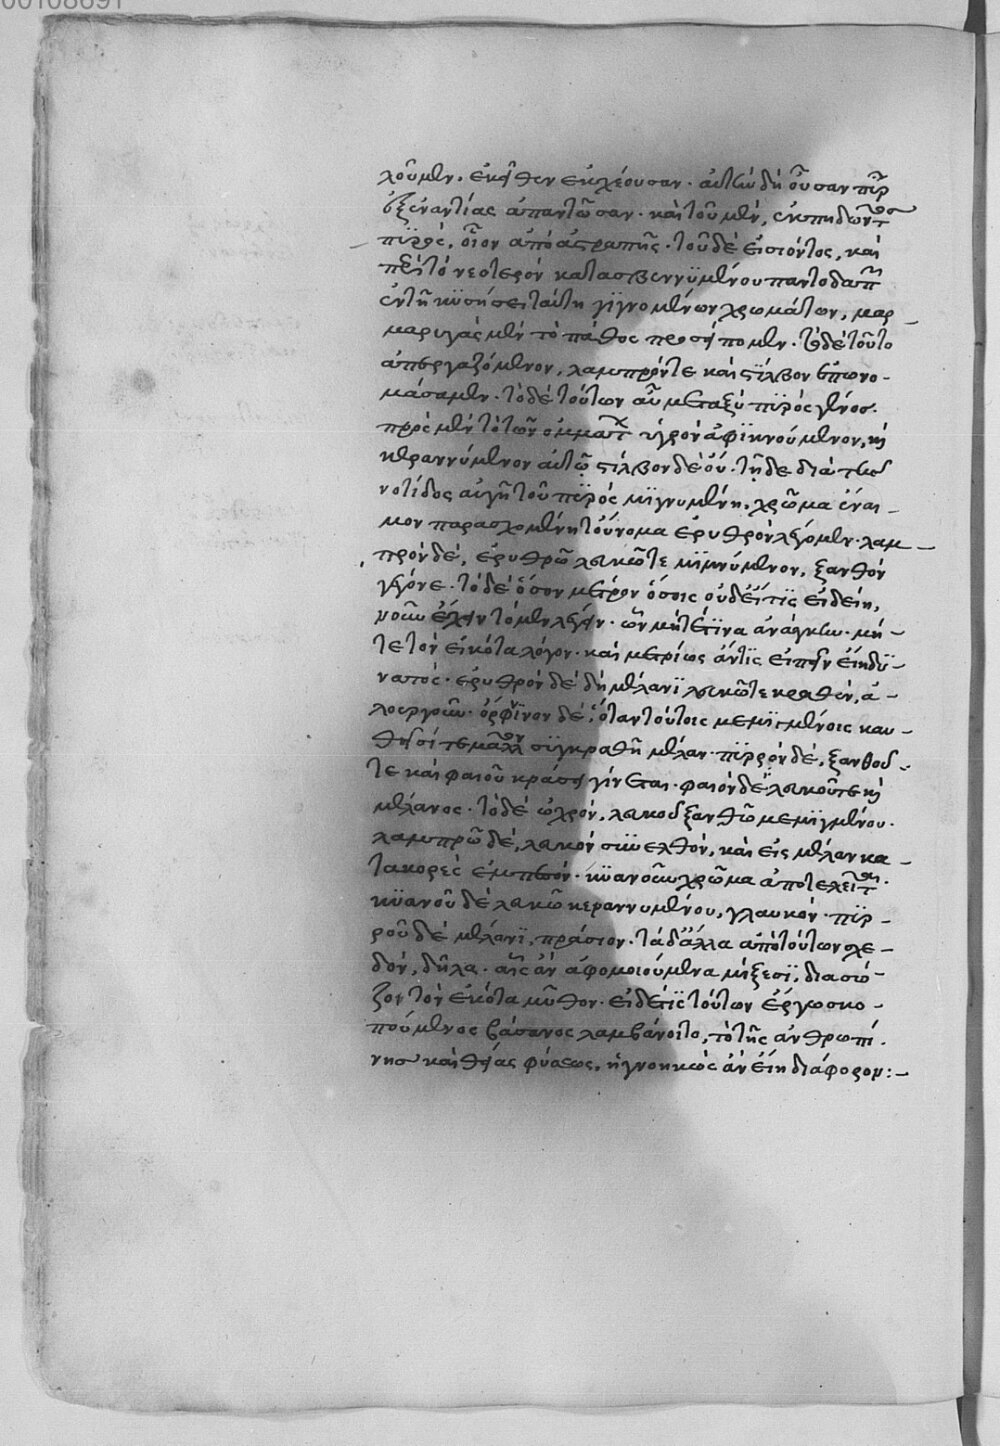 00108691
λοῦμεν. ἐκεῖθεν ἐκχέουσαν. αὐτὴν δὴ οὖσαν πῦρ
ἐξεναντίας ἀπαντῶσαν. καὶ τοῦ μὲν, ἐκπηδῶντος
πυρὸς, οἷον ἀπὸ ἀστραπῆς. τοῦ δὲ εἰσιόντος, καὶ
περὶ τὸ νοτερὸν κατασβεννυμένου παντοδαπῶν
ἐν τῆ κυκήσει ταύτη γιγνομένων χρωμάτων, μαρ
μαρυγὰς μὲν τὸ πάθος προσείπομεν. τὸ δὲ τοῦτο
ἀπεργαζόμενον, λαμπρόν τε καὶ στίλβον ἐπωνο-
μάσαμεν. τὸ δὲ τούτων αὖ μεταξὺ πυρὸς γένος.
πρὸς μὲν τὸ τῶν ὀμμάτων ὑγρὸν ἀφικνούμενον, καὶ
κεραννύμενον αὐτῶ στίλβον δὲ οὔ. τῆ δὲ διὰ τῆς
νοτίδος αὐγῆ τοῦ πυρὸς μιγνυμένη, χρῶμα ἔναι-
μον παρασχομένη τοὔνομα ἐρυθρὸν λέγομεν. λαμ-
πρὸν δὲ, ἐρυθρῶ λευκῶ τε μιγνύμενον, ξανθὸν
γέγονε. τὸ δὲ ὅσον μέτρον ὅσοις οὐδ' εἴ τις εἰδείη,
νοῦν ἔχειν τὸ μὲν λέγειν. ὧν μήτε τινα ἀνάγκην. μή-
τε τὸν εἰκότα λόγον. καὶ μετρίως ἄν τις εἰπεῖν εἴη δυ-
νατός. ἐρυθρὸν δὲ δὴ μέλανι λευκῶ τε κραθὲν, ἁ-
λουργοῦν. ὄρφνινον δὲ, ὅταν τούτοις μεμιγμένοις καυ-
θεῖσί τε μᾶλλον συγκραθῆ μέλαν. πυρρὸν δὲ, ξανθοῦ-
τε καὶ φαιοῦ κράσει γίνεται. φαιὸν δὲ, λευκοῦ τε καὶ
μέλανος. τὸ δὲ ὠχρὸν, λευκοῦ ξανθῶ μεμιγμένου.
λαμπρῶ δὲ, λευκὸν συνελθὸν, καὶ εἰς μέλαν κα-
τακορὲς ἐμπεσὸν. κυανοῦν χρῶμα ἀποτελεῖται.
κυανοῦ δὲ λευκῶ κεραννυμένου, γλαυκόν. πυρ-
ροῦ δὲ μέλανι, πράσιον. τὰ δ' ἄλλα ἀπὸ τούτων σχε-
δὸν, δῆλα. αἷς ἂν ἀφομοιούμενα μίξεσι, διασώ-
ζοι τὸν εἰκότα μῦθον. εἰ δέ τις τούτων ἔργω σκο-
πούμενος βάσανον λαμβάνοιτο, τὸ τῆς ἀνθρωπί-
νης καὶ θείας φύσεως, ἠγνοηκὼς ἂν εἴη διάφορον:-